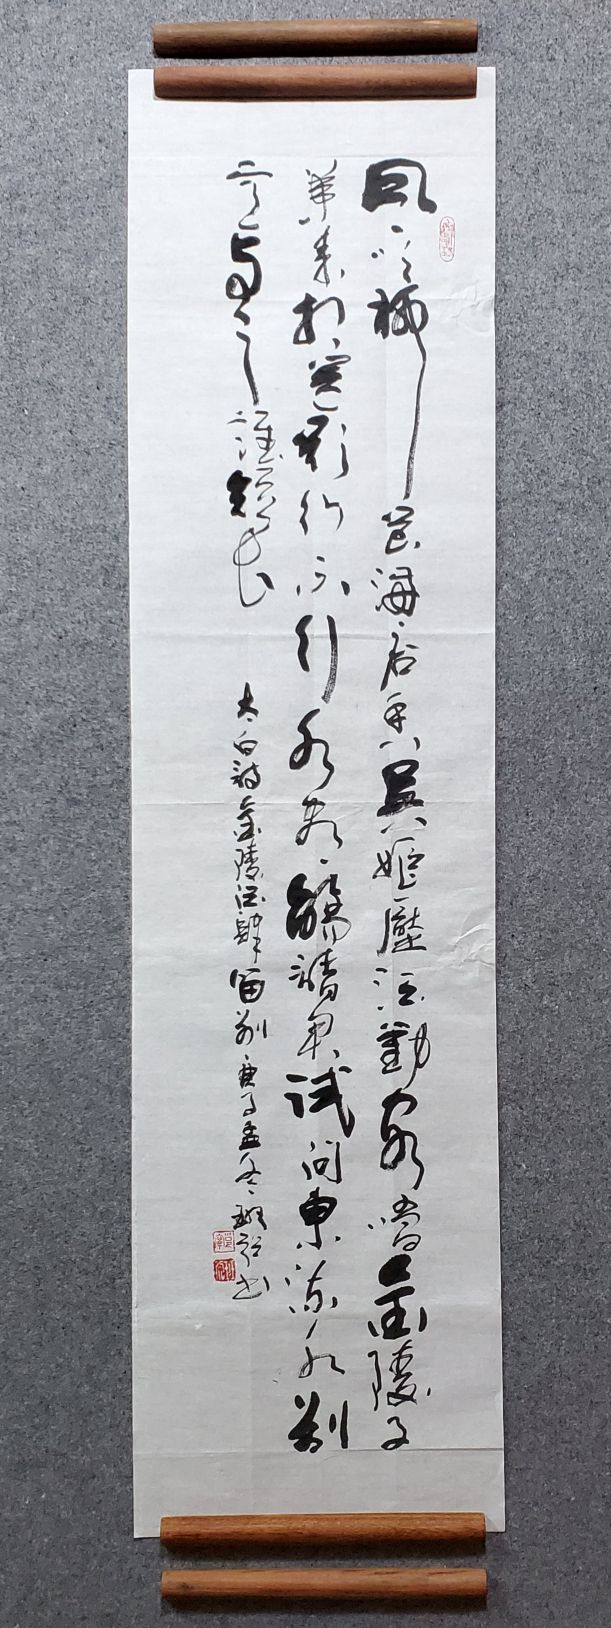 風吹柳花滿店香吳姬壓酒勸客嚐金陵子
弟來相送欲行不行各盡觴請君試問東流水別
意與之誰短長
太白詩金陵酒肆留別庚子孟冬書